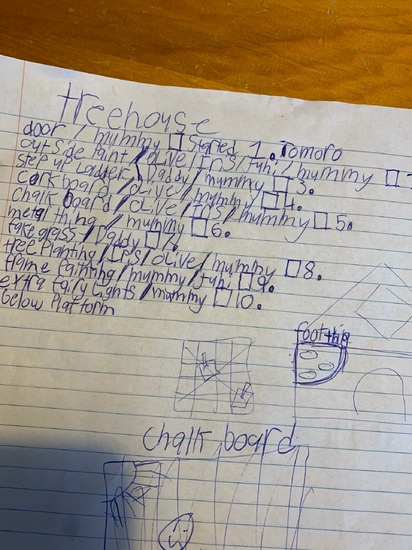 treehouse
door / mummy ☐ Started 1. Tomoro
out side Paint / Olive / Iris / Juni / mummy ☐
step up Ladder / Daddy / mummy ☐ 3.
cork board / Olive / mummy ☐ 4.
chalk board / Olive / Iris / mummy ☐ 5.
metal thing / mummy ☐ 6.
fake grass / Daddy ☐ 7.
tree Planting / Iris / Olive / mummy ☐ 8.
frame Painting / mummy / Juni ☐ 9.
extra fairy Lights / mummy ☐ 10.
below Platform
foot thing
chalk board